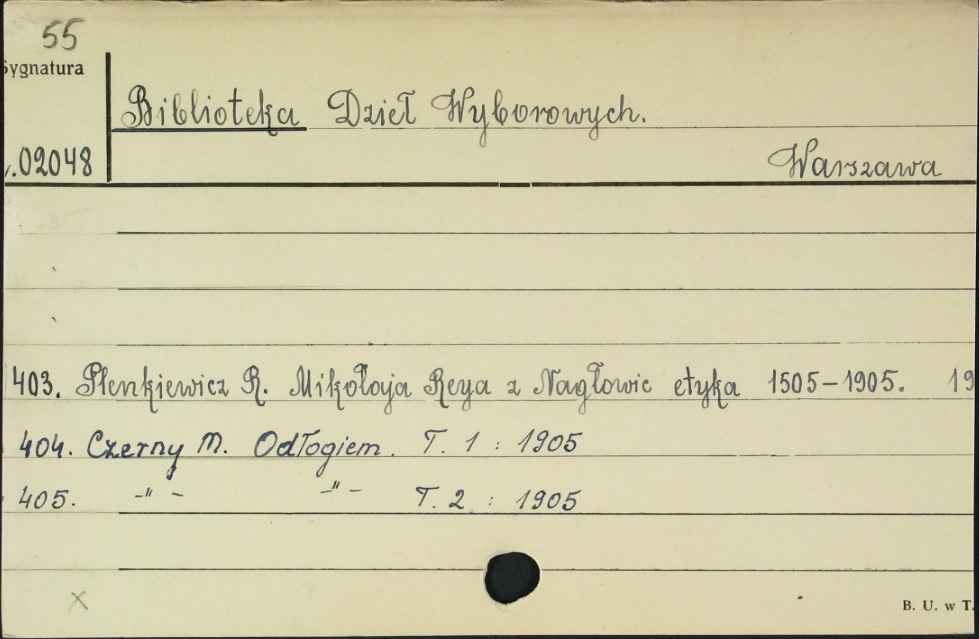 55
Sygnatura
Biblioteka Dzieł Wyborowych.
.02048
Warszawa
403. Plenkiewicz R. Mikołaja Reya z Nagłowic etyka 1505-1905. 19
404. Czerny M. Odłogiem. T. 1 : 1905
405. -"- -"- T. 2. : 1905
x
B. U. w T.